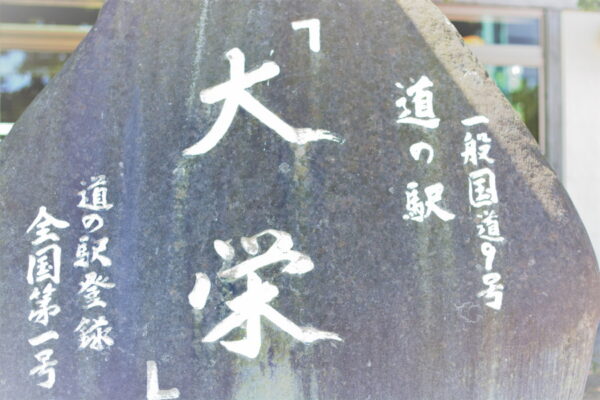 一般国道9号
道の駅
「大栄」
道の駅登録
全国第一号